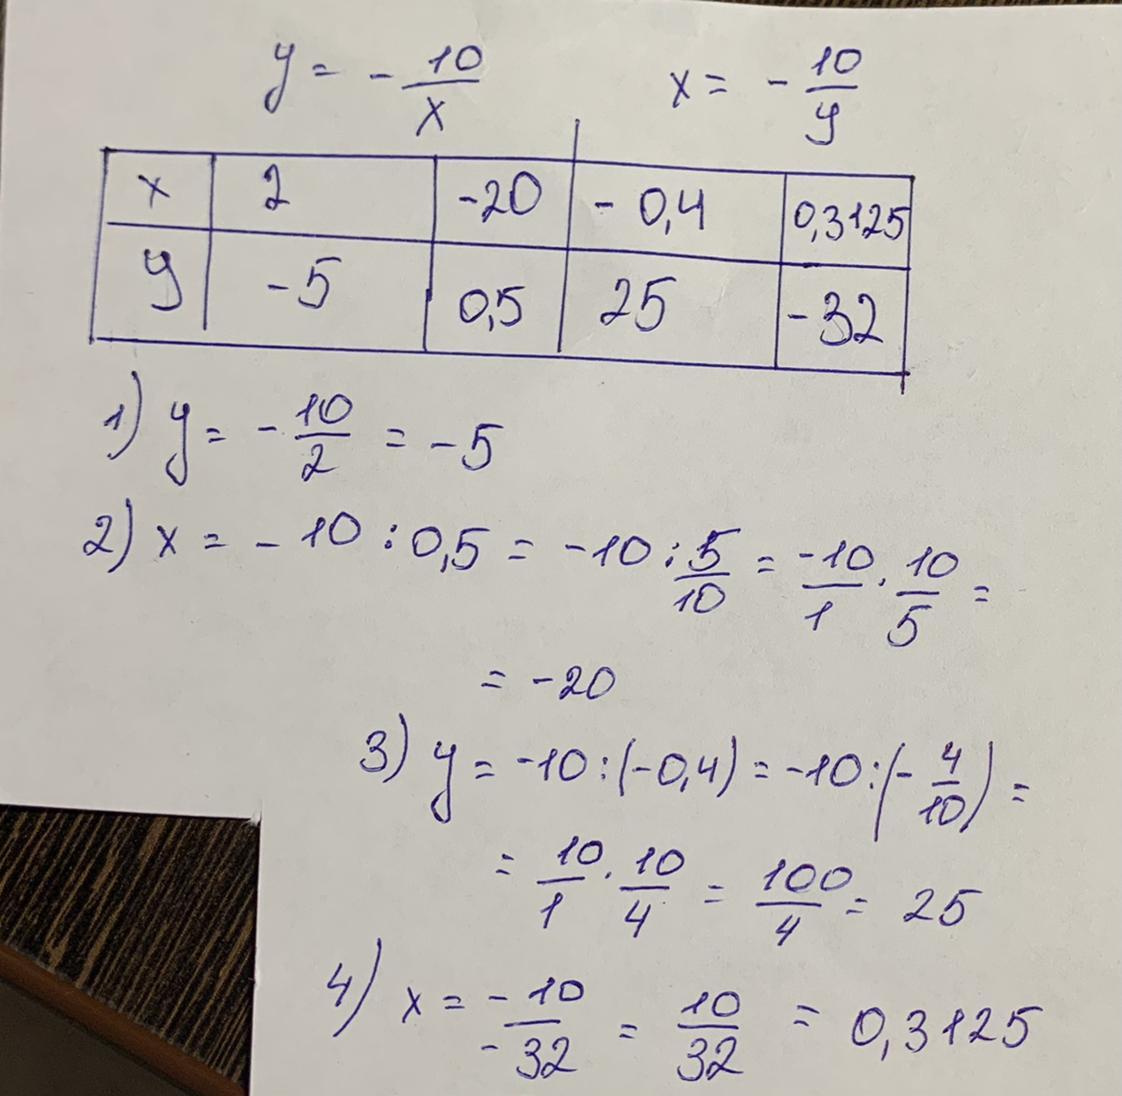 y = - 10/x x = - 10/y
x 2 -20 - 0,4 0,3125
y -5 0,5 25 -32
1) y = - 10/2 = -5
2) x = - 10 : 0,5 = -10 : 5/10 = -10/1 · 10/5 =
= -20
3) y = -10 : (-0,4) = -10 : (- 4/10) =
= 10/1 · 10/4 = 100/4 = 25
4) x = -10/-32 = 10/32 = 0,3125